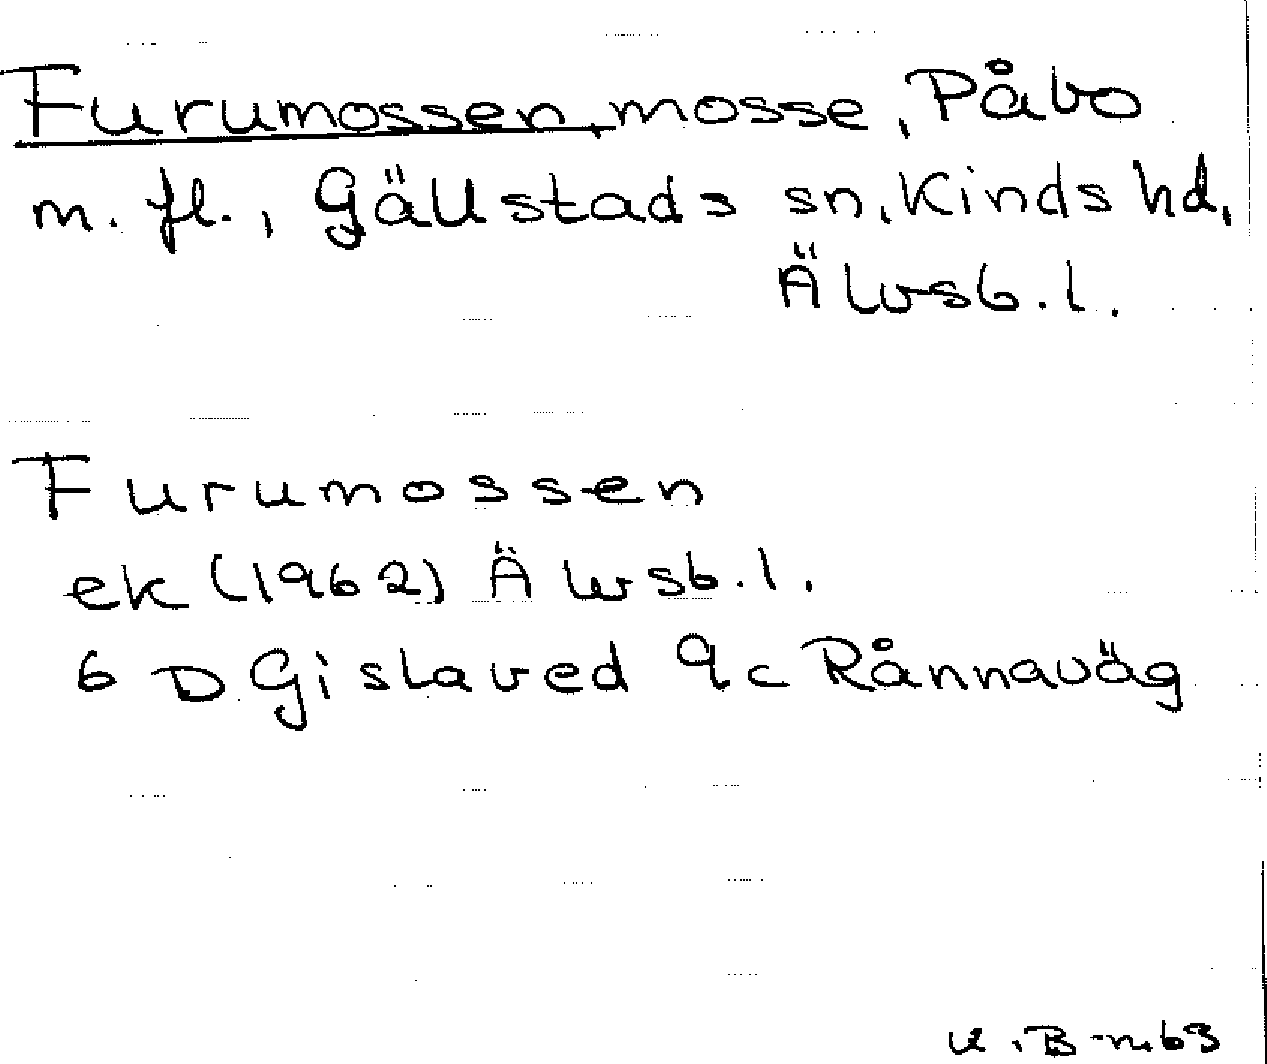 Furumossen, mosse, Påbo
m. fl., Gällstads sn, Kinds hd,
Älvsb. l.
Furumossen
ek (1962) Älvsb. l.
6 D Gislaved 9c Rånnaväg
K. B-n 63